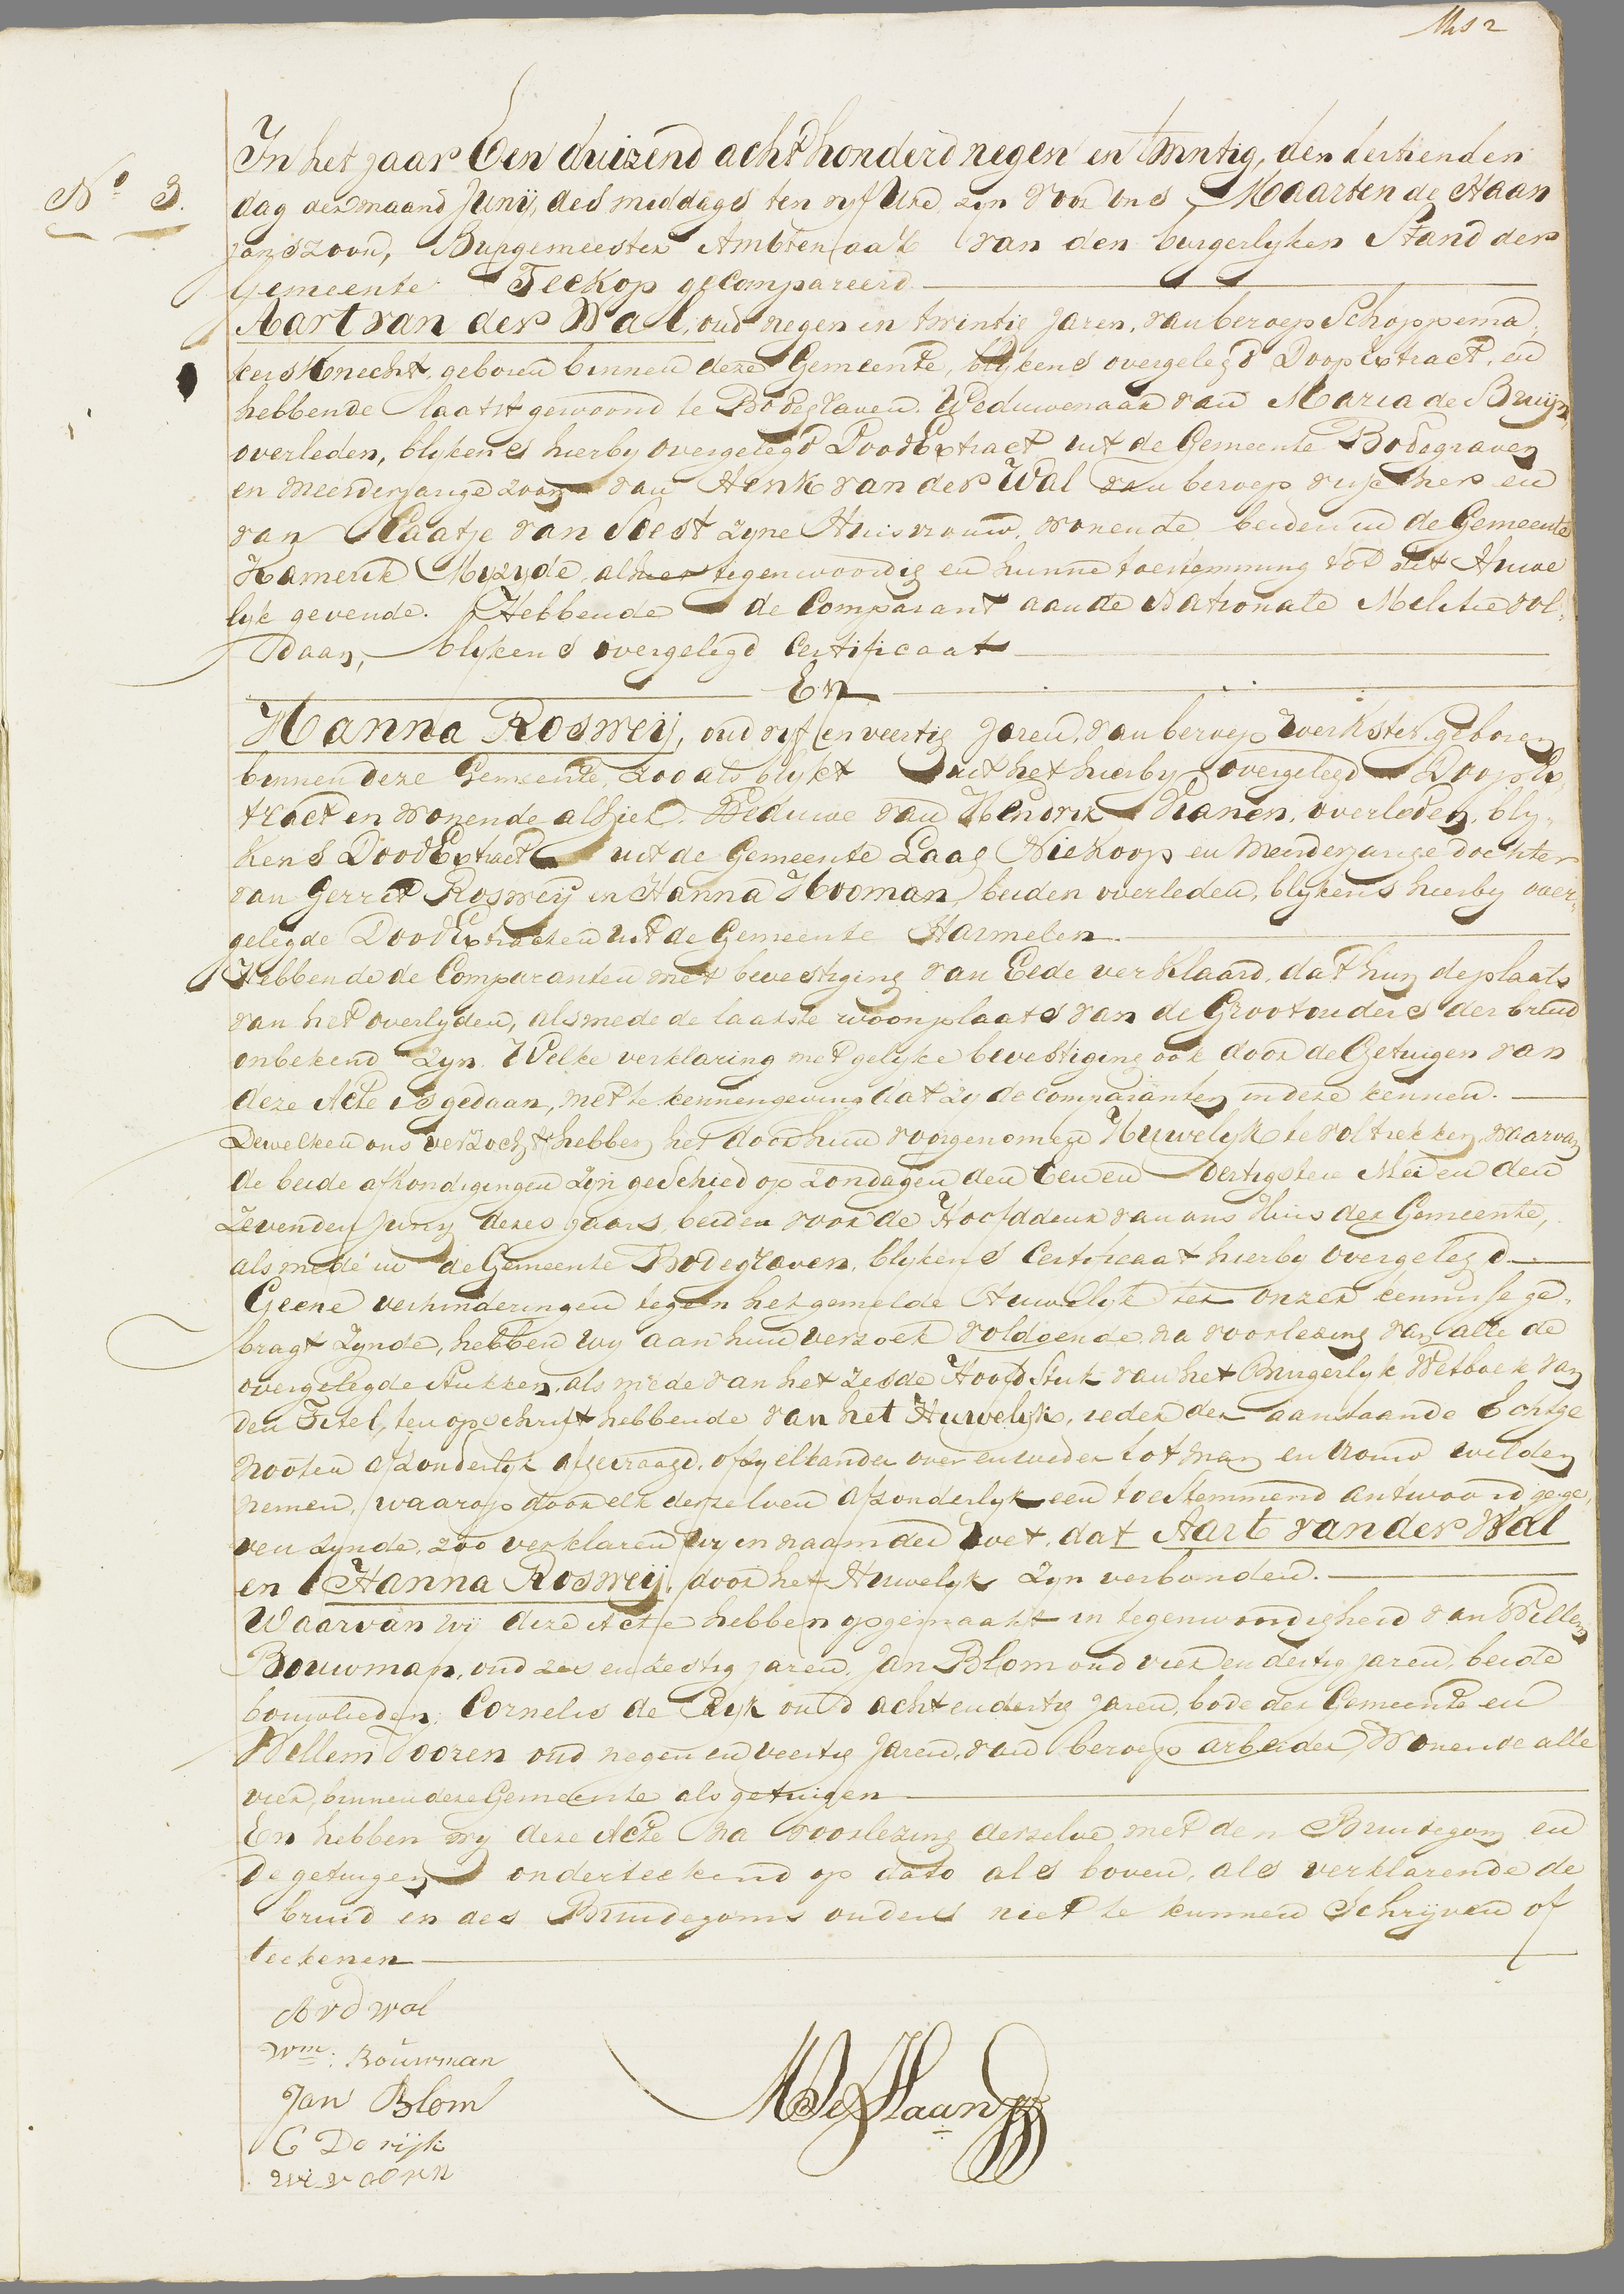 N.º 3.
In het jaar Een duizend acht honderd negen en twintig, den dertienden
dag der maand Junij, des middags ten vyf Ure, zyn voor ons Maarten de Haan
janszoon, Burgemeester Ambtenaar van den burgerlyken Stand der
Gemeente Teckop gecompareerd
Aart van der Wal, oud negen en twintig jaren, van beroep Schoppema
kers Knecht, geboren binnen deze Gemeente, blykens overgelegd Doop Extract, en
hebbende laatst gewoond te Bodegraven. Weduwenaar van Maria de Bruijn
overleden, blykens hierby overgelegd Dood Extract uit de Gemeente Bodegraven
en meerderjarige zoon van Henk van der Wal van beroep visscher en
van Plaatje van Soest zyne Huisvrouw, wonende beiden in de Gemeente
Kamerik Myzyde, alhier tegenwoordig en hunne toestemming tot dit Huwe
lyk gevende. Hebbende de Comparant aan de Nationale Melitie vol,
daan, blykens overgelegd Certificaat
En
Hanna Rosweij, oud vyf en veertig Jaren, van beroep werkster, geboren
binnen deze Gemeente, zoo als blykt uit het hierby overgelegd Doop Ex,
tract en wonende alhier. Weduwe van Hendrik Kranen, overleden, bly,
kens Dood Extract uit de Gemeente Laag Niekoop en Meerderjarige dochter
van Gerrit Rosweij en Hanna Hooman, beiden overleden, blykens hierby over,
gelegde Dood Extracten uit de Gemeente Harmelen.
Hebbende de Comparanten met bevestiging van Eede verklaard, dat hun de plaats
van het overlyden, alsmede de laatste woonplaats van de Grootouders der bruid
onbekend zyn. Welke verklaring met gelyke bevestiging ook door de Getuigen van
deze Acte is gedaan, met te kennengeving dat zy de comparanten in deze kennen.
Dewelken ons verzocht hebben het door hun voorgenomen Huwelyk te voltrekken, waarvan
de beide afkondigingen zyn geschied op zondagen den Een en dertigsten Mei en den
Zevenden Junij dezes jaars, beiden voor de Hoofddeur van ons Huis der Gemeente,
als mede in de Gemeente Bodegraven, blykens Certificaat hierby overgelegd
Geene verhinderingen tegen het gemelde Huwelyk ter onzer kennisse ge,
bragt zynde, hebben wy aan hun verzoek voldoende, na voorlezing van alle de
overgelegde stukken, als mede van het zesde Hoofdstuk van het Burgerlyk Wetboek van
den Titel, ten opschrift hebbende van het Huwelijk, ieder der aanstaande Echtge
nooten afzonderlyk afgevraagd, of zy elkander over en weder tot man en vrouw wilden
nemen, waarop door elk derzelven afzonderlyk een toestemmend antwoord gege,
ven zynde, zoo verklaren wy in naam der wet, dat Aart van der Wal
en Hanna Rosweij, door het Huwelyk zyn verbonden.
Waarvan wij deze Acte hebben opgemaakt in tegenwoordigheid van Willem
Bouwman, oud zes en zestig jaren, Jan Blom oud vier en dertig jaren, beide
bouwlieden, Cornelis de Ryk oud acht en dertig jaren, bode der Gemeente en
Willem Vooren oud negen en veertig Jaren, van beroep arbeider, Wonende alle
vier, binnen deze Gemeente als getuigen
En hebben wy deze Acte na voorlezing derzelve met den Bruidegom en
de getuigen onderteekend op dato als boven, als verklarende de
bruid en des Bruidegoms ouders niet te kunnen Schrijven of
teekenen
A v d wal
Wm: Bouwman
Jan Blom
C De rijk
M De Haan Jz